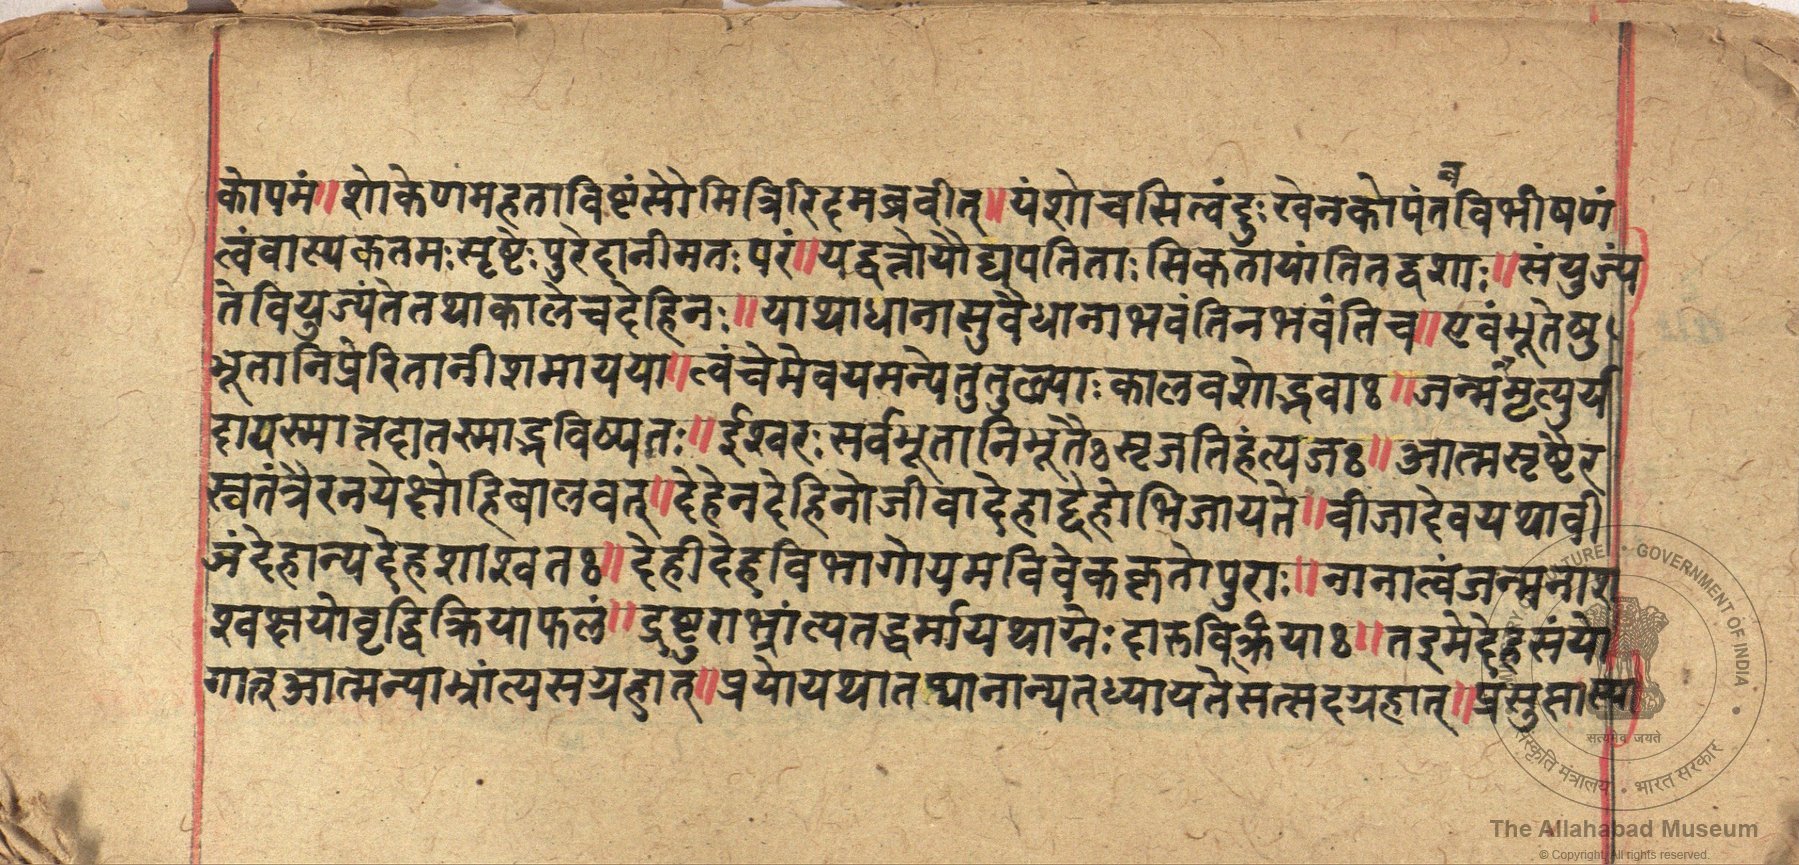 कोपमं॥शोकेणमहताविष्टंसौमित्रिरिदमब्रवीत्॥यंशोचसित्वंदुःखेनकोपंतवविभीषणं
त्वंवास्यकतमःसृष्टेःपुरेदानीमतःपरं॥यद्वत्तोयौद्यपतिताःसिकतायांतितद्वशाः॥संयुज्यं
तेवियुज्यंतेतथाकालेचदेहिनः॥याथाधानासुवैधानाभवंतिनभवंतिच॥एवंभूतेषु
भूतानिप्रेरितानीशमायया॥त्वंचेमेवयमन्येतुतुल्याःकालवशोद्भवाः॥जन्मंमृत्युर्य
दायस्मान्नदातस्माद्भविष्यतः॥ईश्वरःसर्वभूतानिभूतैःसृजतिहंत्यजः॥आत्मसृष्टैर
स्वतंत्रैरनयेक्षोहिबालवत्॥देहेनदेहिनोजीवादेहाद्देहोभिजायते॥वीजादेवयथावी
जंदेहान्यदेहशाश्वतः॥देहीदेहविभागोयमविवेककृतोपुराः॥नानात्वंजन्मनाश
श्वक्षयोवृद्धिक्रियाफलं॥द्रष्टुराभ्रांत्यतद्धर्मायथाग्नेःदारुविक्रियाः॥तइमेदेहसंयो
गात्आत्मन्याभ्रांत्यसग्रहात्॥यथातथानान्यतध्यायतेसत्सदग्रहात्॥प्रंसुप्तास्या
The Allahabad Museum
© Copyright. All rights reserved.
GOVERNMENT OF INDIA
सत्यमेव जयते
संस्कृति मंत्रालय • भारत सरकार